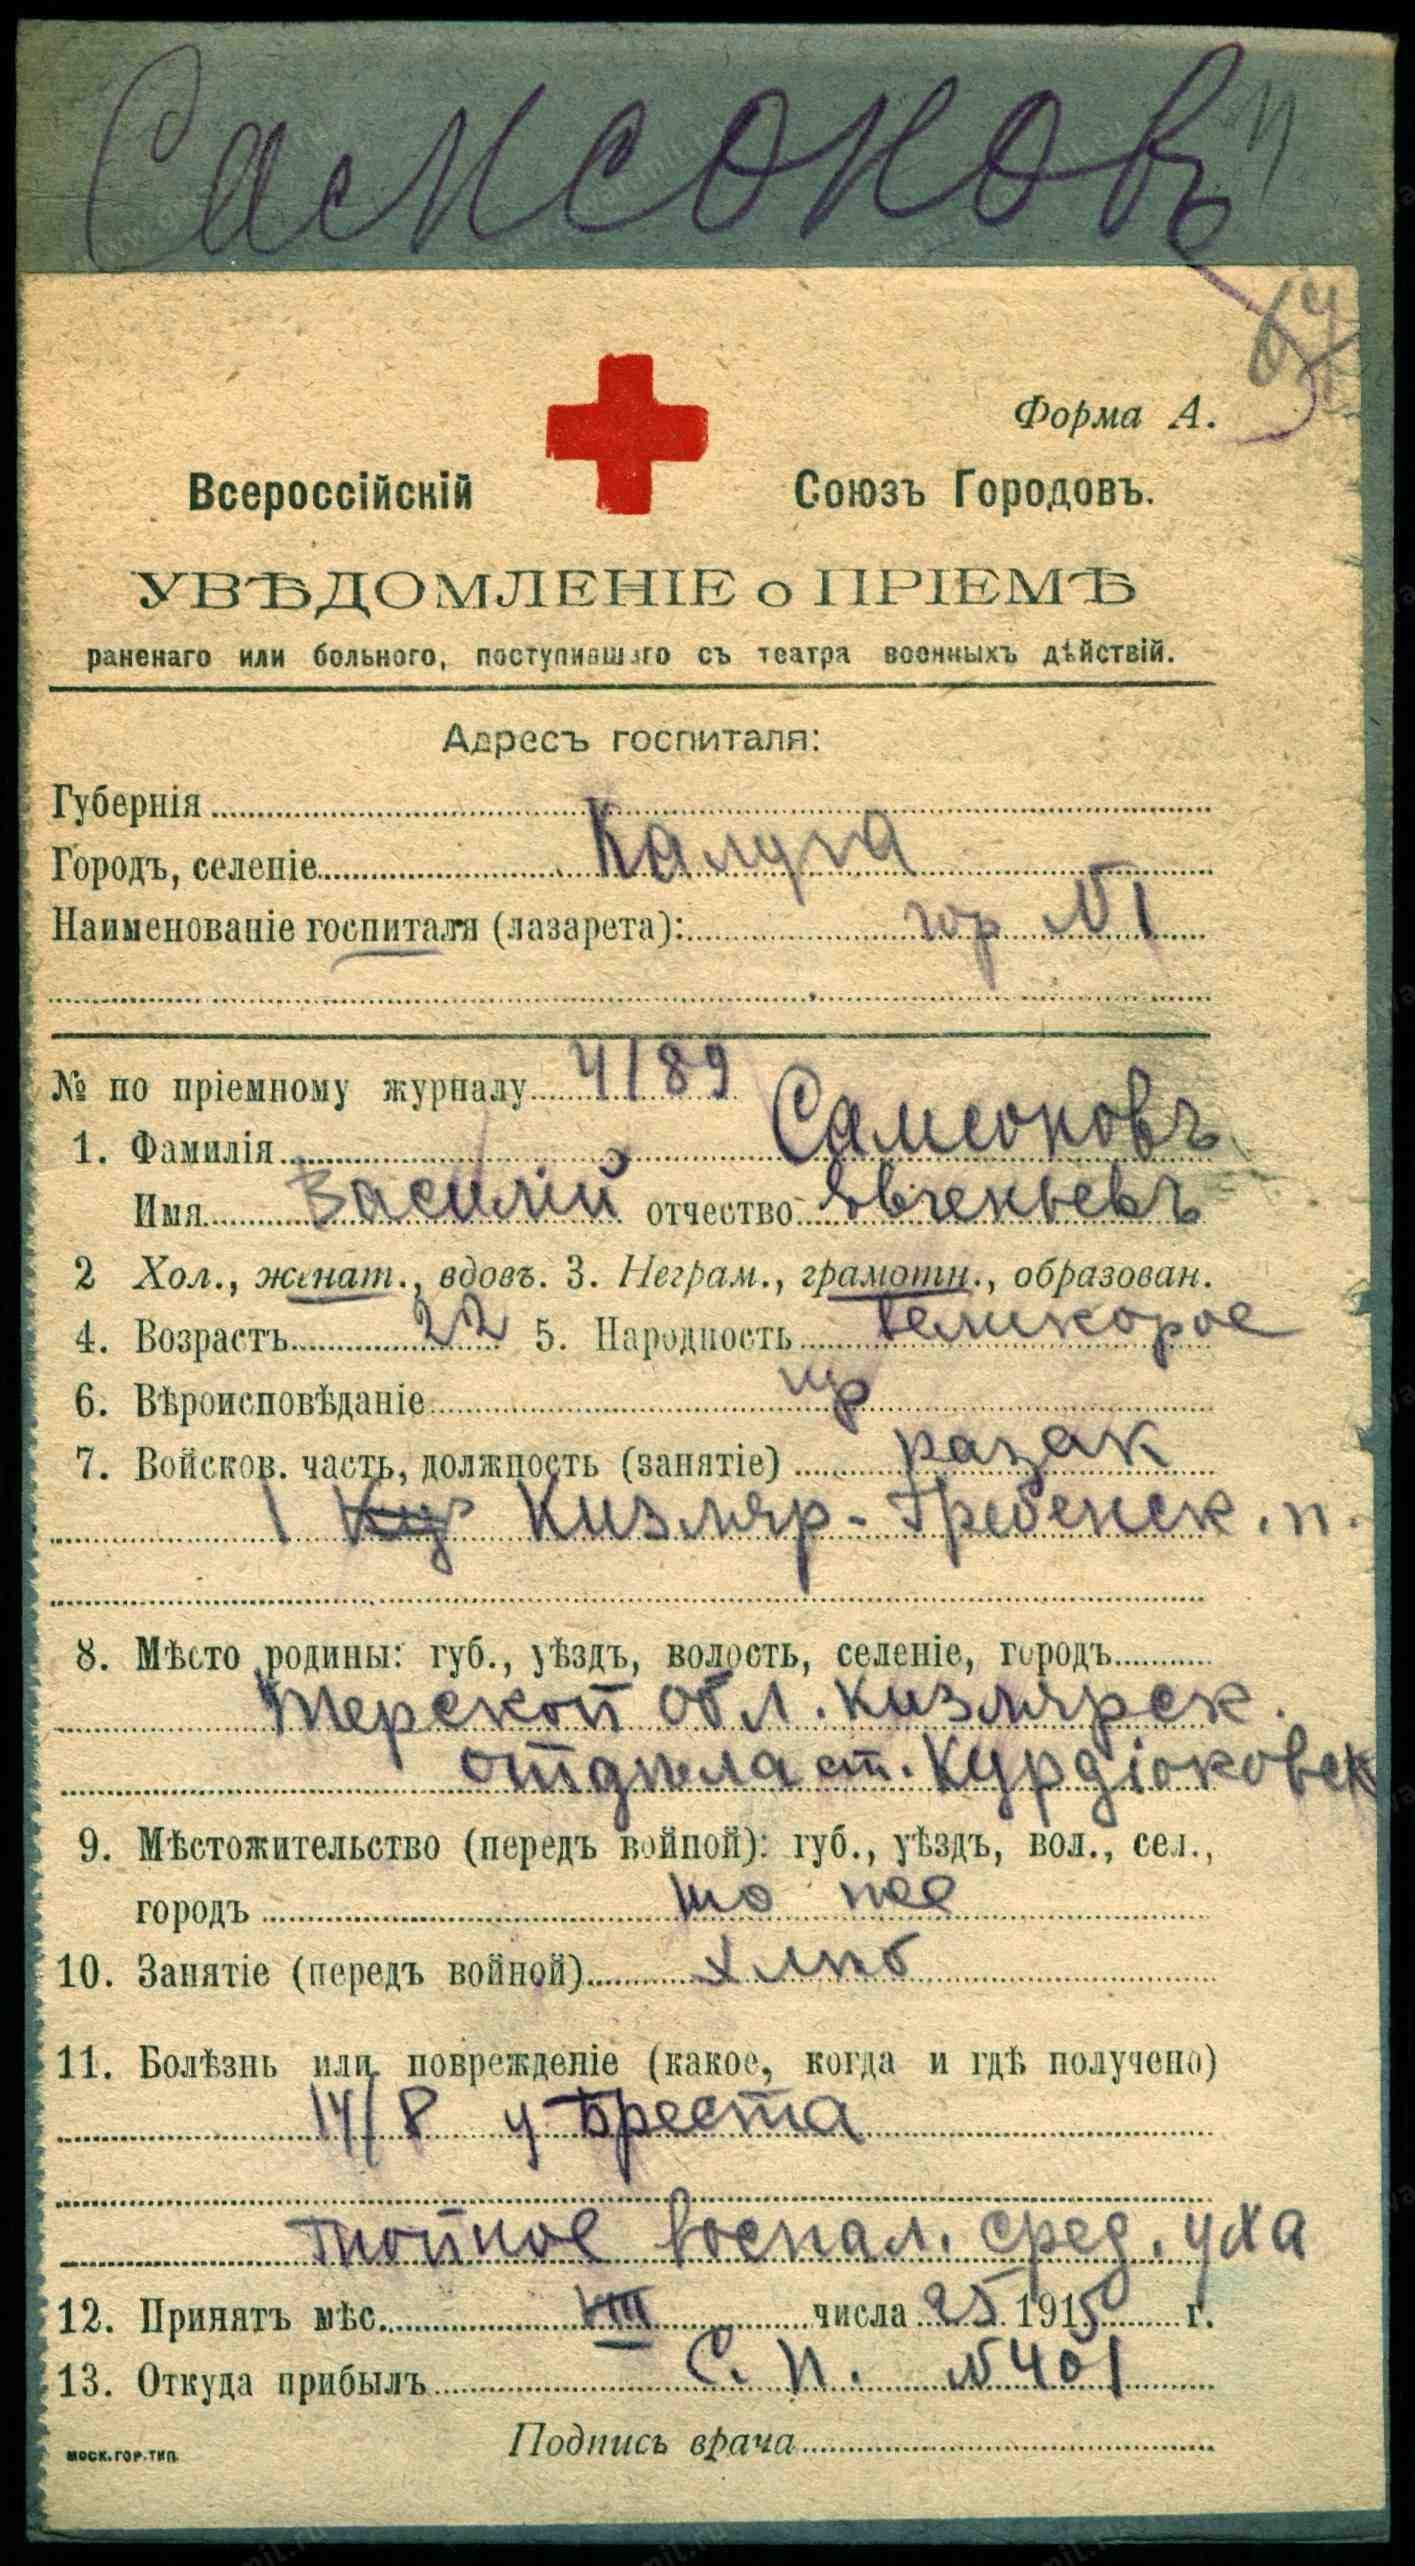 Самсоновъ
67
Форма А.
Всероссійскій Союзъ Городовъ.
УВѢДОМЛЕНІЕ о ПРІЕМѢ
раненаго или больного, поступившаго съ театра военныхъ дѣйствій.
Адресъ госпиталя:
Губернія
Городъ, селеніе Калуга
Наименованіе госпиталя (лазарета): гор №1
№ по пріемному журналу 4189
1. Фамилія Самсоновъ
Имя Василій отчество Евгеньевъ
2 Хол., женат., вдовъ. 3. Неграм., грамотн., образован.
4. Возрастъ 22 5. Народность великорос
6. Вѣроисповѣданіе пр
7. Войсков. часть, должность (занятіе) казак
1 Киз Кизляр-Гребенск. п.
8. Мѣсто родины: губ., уѣздъ, волость, селеніе, городъ
Терской обл. Кизлярск.
отдѣла ст. Курдюковск
9. Мѣстожительство (передъ войной): губ., уѣздъ, вол., сел.,
городъ то же
10. Занятіе (передъ войной) хлѣб
11. Болѣзнь или поврежденіе (какое, когда и гдѣ получено)
14/8 у Бреста
Гнойное воспал. сред. уха
12. Принятъ мѣс. VIII числа 25 1915 г.
13. Откуда прибылъ С. П. №401
Подпись врача
МОСК. ГОР. ТИП.